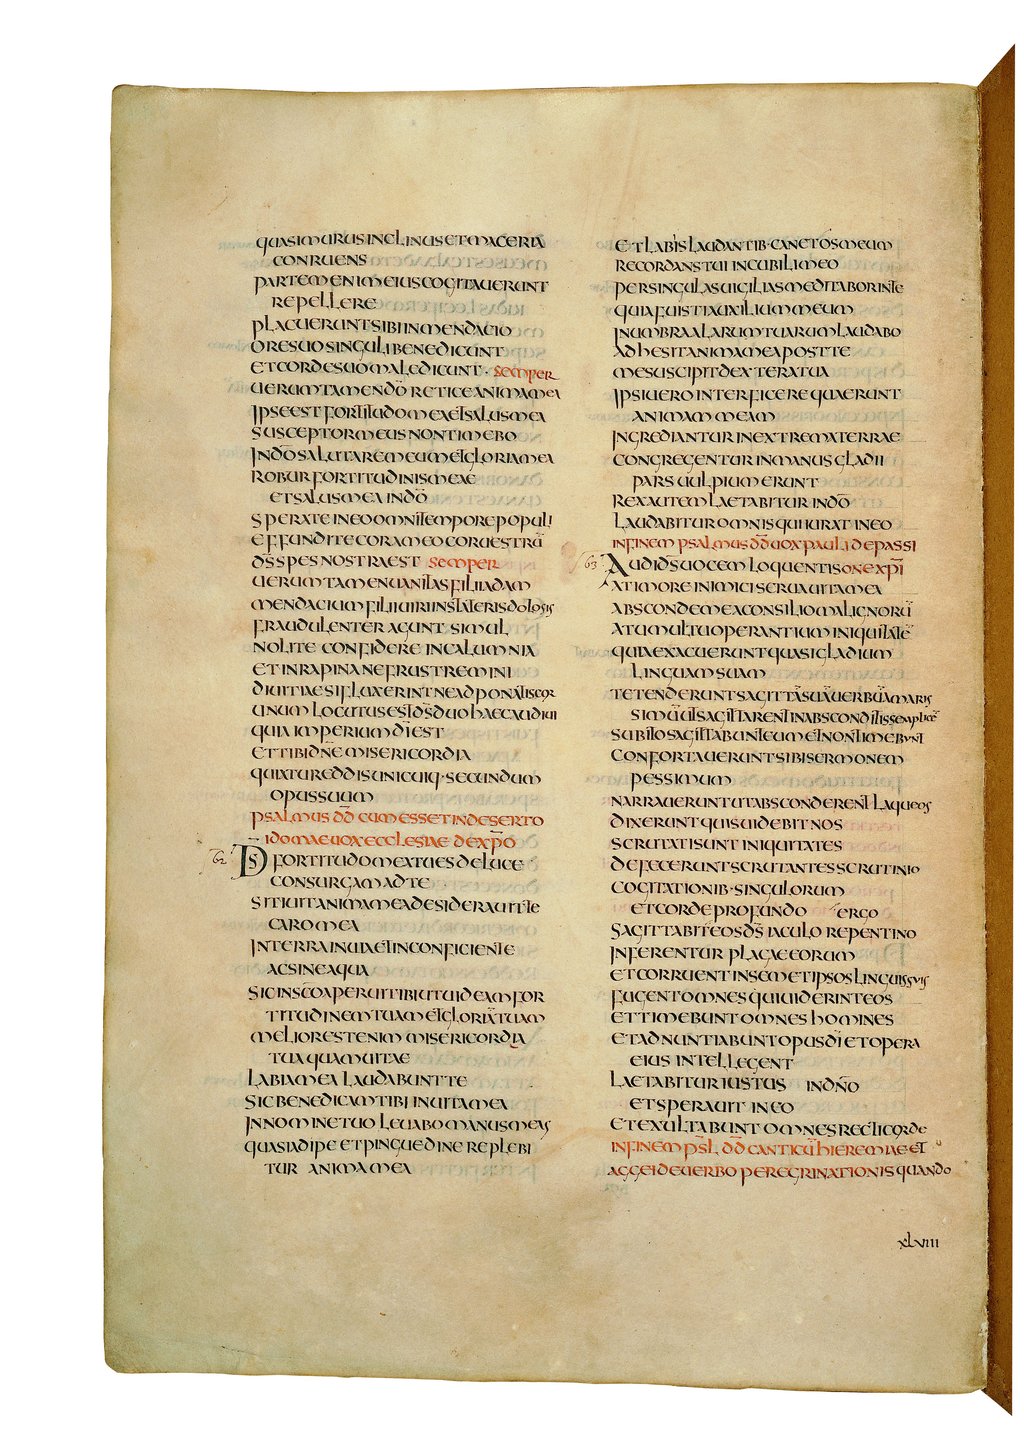 QUASIMURUSINCLINUSETMACERIA
CONRUENS
PARTEMENIMEIUSCOGITAUERUNT
REPELLERE
PLACUERUNTSIBIINMENDACIO
ORESUOSINGULIBENEDICUNT
ETCORDESUOMALEDICUNT · SEMPER
UERUMTAMENDO̅ RETICEANIMAMEA
IPSEESTFORTITUDOMEAETSALUSMEA
SUSCEPTORMEUSNONTIMEBO
INDO̅SALUTAREMEUMETGLORIAMEA
ROBURFORTITUDINISMEAE
ETSALUSMEAINDO̅
SPERATEINEOOMNITEMPOREPOPULI
EFFUNDITECORAMEOCORUESTRU̅
DS̅SPESNOSTRAEST SEMPER
UERUMTAMENUANITASFILIIADAM
MENDACIUMFILIIUIRIINSTATERISDOLOSIS
FRAUDULENTERAGUNT SIMUL
NOLITE CONFIDERE INCALUMNIA
ETINRAPINANEFRUSTREMINI
DIUITIAESIFLUXERINTNEADPONATISCOR
UNUM LOCUTUSESTDS̅DUOHAECAUDIUI
QUIAIMPERIUMDI̅EST
ETTIBIDNE̅MISERICORDIA
QUIATUREDDISUNICUIQ·SECUNDUM
OPUSSUUM
PSALMUS DD̅ CUMESSETINDESERTO
IDOMAEUOXECCLESIAE DEXPO̅
62 DS̅ FORTITUDOMEATUESDELUCE
CONSURGAMADTE
SITIUITANIMAMEADESIDERAUITTE
CAROMEA
INTERRAINUIAETINCONFICIENTE
ACSINEAQUA
SICINSCO̅APERUITIBIUTUIDEAMFOR
TITUDINEMTUAMETGLORIAMTUAM
MELIORESTENIM MISERICORDIA
TUAQUAMUITAE
LABIAMEA LAUDABUNTTE
SICBENEDICAMTIBI INUITAMEA
INNOMINETUO LEUABOMANUSMEAS
QUASIADIPEETPINGUEDINEREPLEBI
TUR ANIMAMEA
ETLABIS LAUDANTIB·CANETOSMEUM
RECORDANSTUI INCUBILIMEO
PERSINGULASUIGILIASMEDITABORINTE
QUIAFUISTIAUXILIUMMEUM
INUMBRAALARUMTUARUMLAUDABO
ADHESITANIMAMEAPOSTTE
MESUSCIPITDEXTERATUA
IPSIUEROINTERFICEREQUAERUNT
ANIMAMMEAM
INGREDIANTURINEXTREMATERRAE
CONGREGENTURINMANUSGLADII
PARSUULPIUMERUNT
REXAUTEMLAETABITURINDO̅
LAUDABITUROMNISQUIIURATINEO
INFINEM PSALMUSDD̅UOXPAULIDEPASSI
63 AUDIDS̅UOCEMLOQUENTISONEXPI̅
ATIMOREINIMICISERUAUITAMEA
ABSCONDEMEACONSILIOMALIGNORU̅
ATUMULTUOPERANTIUMINIQUITATE̅
QUIAEXACUERUNTQUASIGLADIUM
LINGUAMSUAM
TETENDERUNTSAGITTA̅SUA̅UERBU̅AMARIS
SIMU̅UTSAGITTARENTINABSCONDITISSEMPLICE̅
SUBITOSAGITTABUNTEUMETNONTIMEBUNT
CONFORTAUERUNTSIBISERMONEM
PESSIMUM
NARRAUERUNTUTABSCONDERENTLAQUEOS
DIXERUNTQUISUIDEBITNOS
SCRUTATISUNTINIQUITATES
DEFECERUNTSCRUTANTESSCRUTINIO
COGITATIONIB·SINGULORUM
ETCORDEPROFUNDO ERGO
SAGITTABITEOSDS̅ IACULO REPENTINO
INFERENTUR PLAGAEEORUM
ETCORRUENTINSEMETIPSOSLINGUISSUIS
FUGENTOMNESQUIUIDERINTEOS
ETTIMEBUNTOMNES HOMINES
ETADNUNTIABUNTOPUSDI̅ETOPERA
EIUS INTELLEGENT
LAETABITURIUSTUS INDNO̅
ETSPERAUIT INEO
ETEXULTABUNT OMNESRECTICORDE
INFINEM PSL̅ DD̅ CANTICU̅HIEREMIAEET
AGGEIDEUERBO PEREGRINATIONISQUANDO
XLVIIII